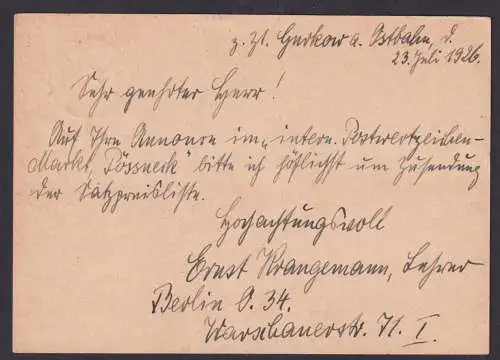 z. Zt. Gurkow a. Ostbahn, d.
23. Juli 1926.
Sehr geehrter Herr!
Auf Ihre Annonce im „intern. Postwertzeichen-
Markt, Pössneck“ bitte ich höflichst um Zusendung
der Satzpreisliste.
Hochachtungsvoll
Ernst Wrangemann, Lehrer
Berlin O. 34.
Warschauerstr. 71. I.